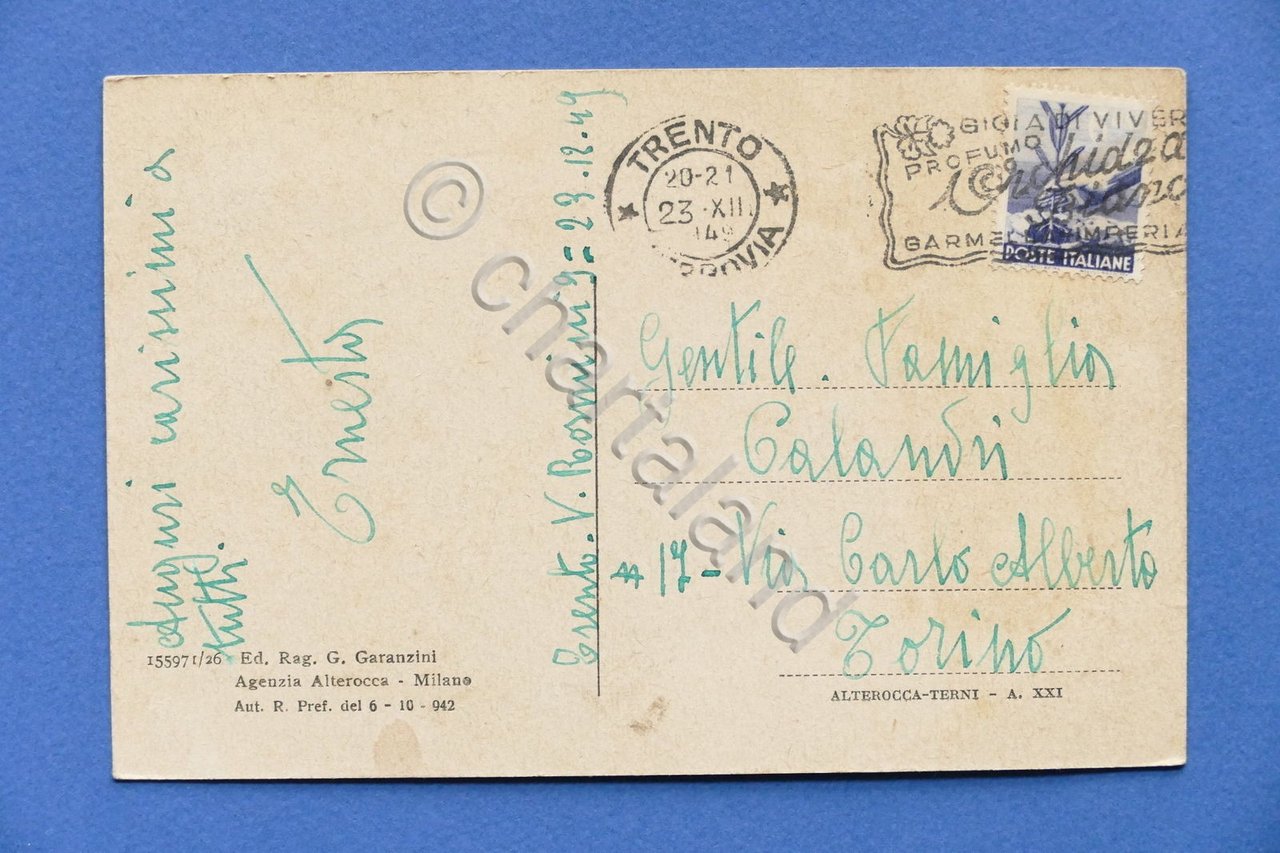 Auguri carissimi a
tutti.
Ernesto
Trento. V. Rosmini 9 = 23.12.49
155971/26 Ed. Rag. G. Garanzini
Agenzia Alterocca - Milano
Aut. R. Pref. del 6 - 10 - 942
TRENTO
20-21
23·XII.
49
FERROVIA
GIOIA DI VIVER
PROFUMO
Orchidea
GARMEL IMPERIA
POSTE ITALIANE
Gentile. Famiglia
Calandri
# 17 - Via Carlo Alberto
Torino
ALTEROCCA-TERNI - A. XXI
© chartaland